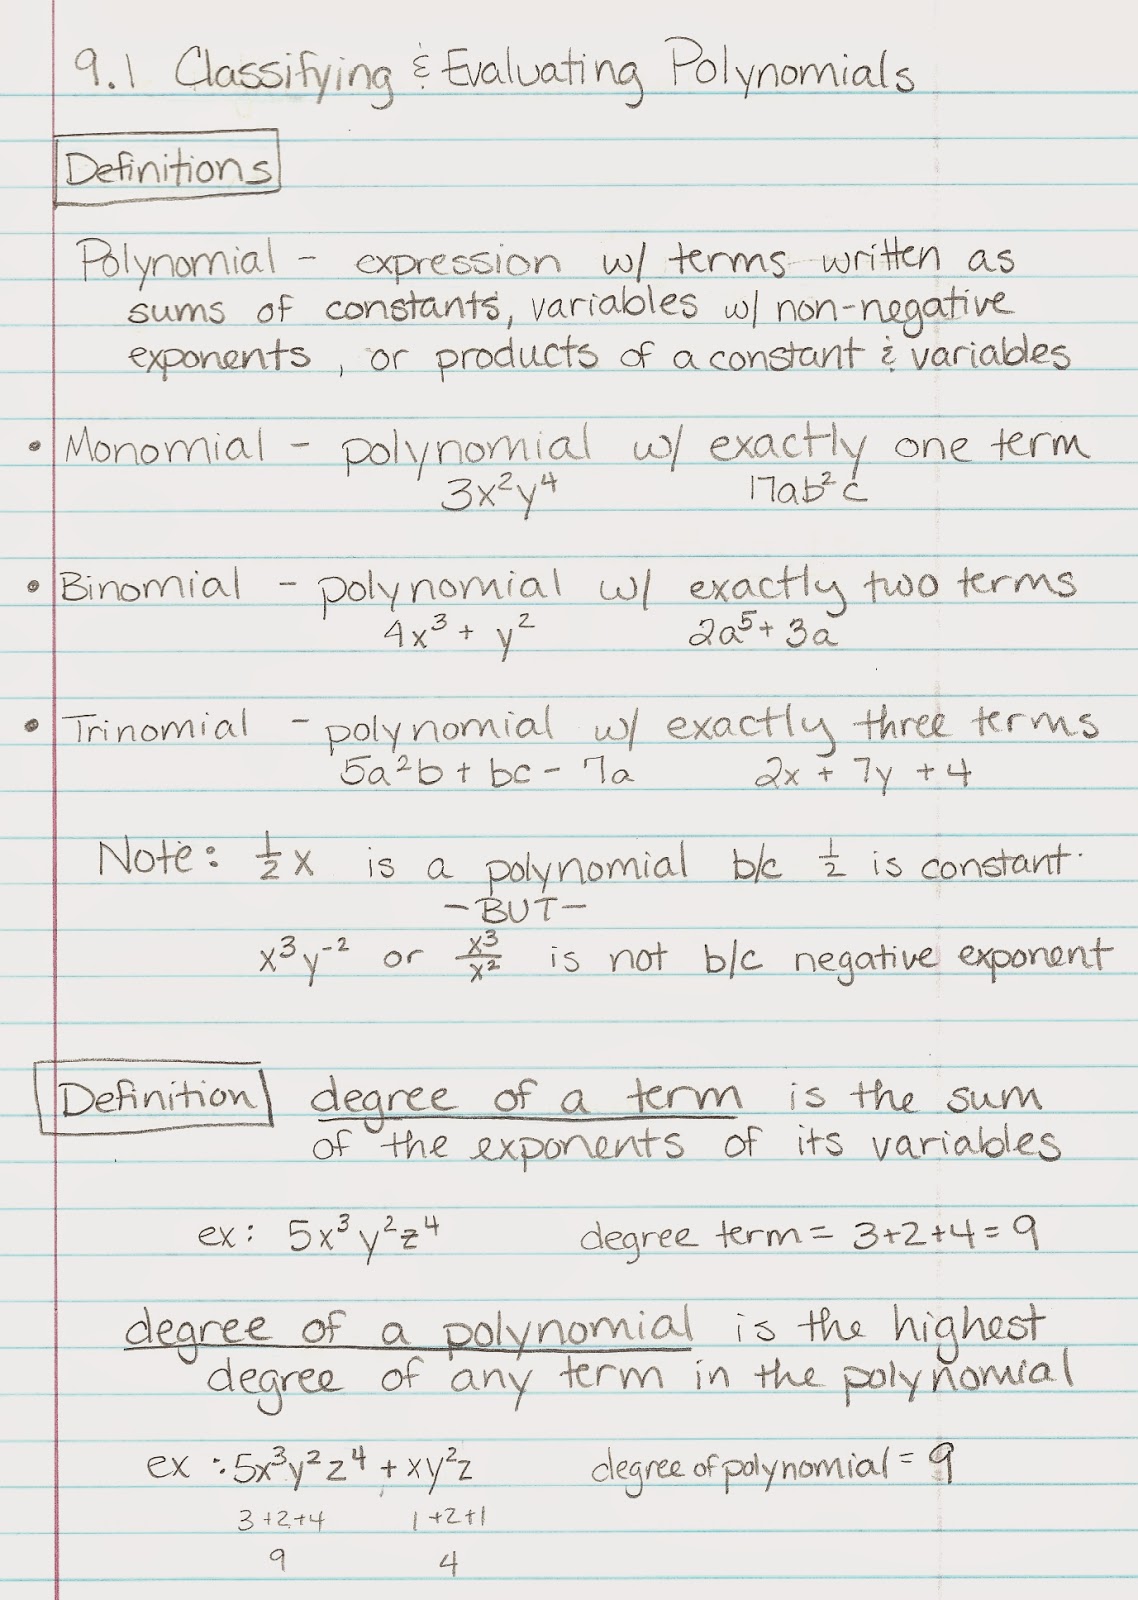 9.1 Classifying & Evaluating Polynomials
Definitions
Polynomial - expression w/ terms written as
sums of constants, variables w/ non-negative
exponents, or products of a constant & variables
• Monomial - polynomial w/ exactly one term
3x²y⁴ 17ab²c
• Binomial - polynomial w/ exactly two terms
4x³ + y² 2a⁵ + 3a
• Trinomial - polynomial w/ exactly three terms
5a²b + bc - 7a 2x + 7y + 4
Note: ½x is a polynomial b/c ½ is constant
-BUT-
x³y⁻² or x³/x² is not b/c negative exponent
Definition degree of a term is the sum
of the exponents of its variables
ex: 5x³y²z⁴ degree term = 3+2+4=9
degree of a polynomial is the highest
degree of any term in the polynomial
ex: 5x³y²z⁴ + xy²z degree of polynomial = 9
3+2+4 1+2+1
9 4